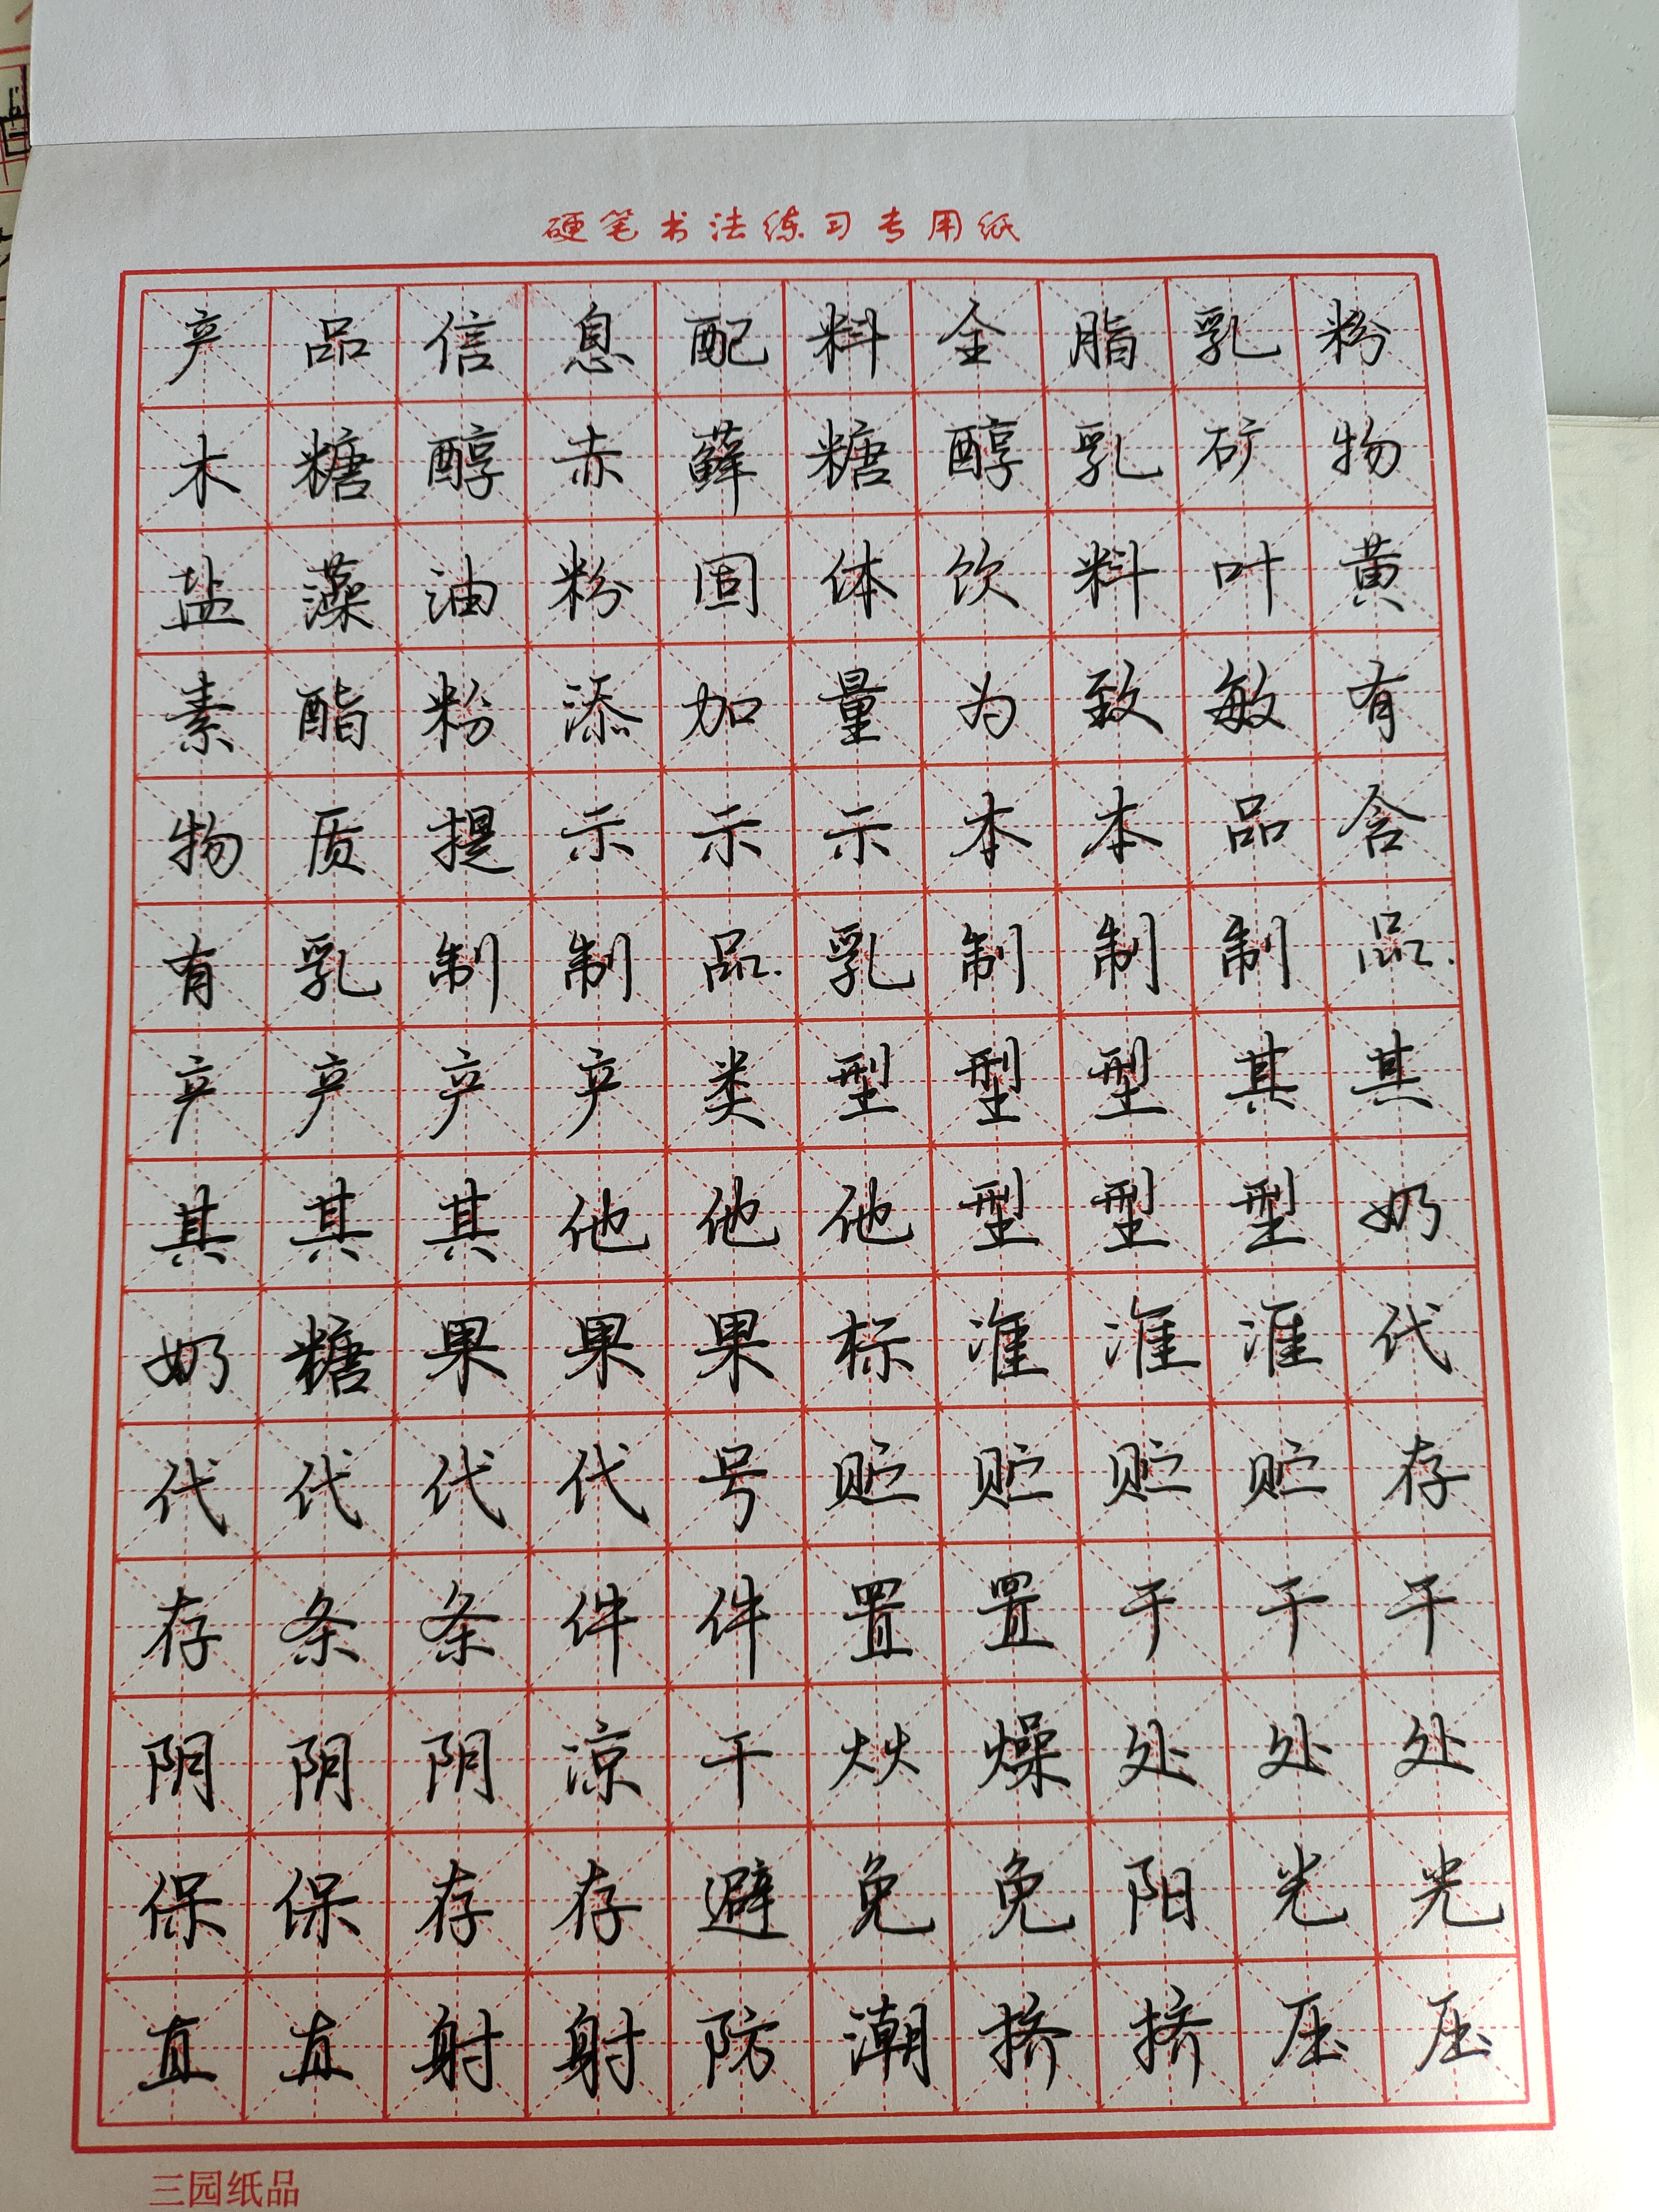 硬笔书法练习专用纸
产品信息配料全脂乳粉
木糖醇赤藓糖醇乳矿物
盐藻油粉固体饮料叶黄
素酯粉添加量为致敏有
物质提示示示本本品含
有乳制制品.乳制制制品.
产产产产类型型型其其
其其其他他他型型型奶
奶糖果果果标准准准代
代代代代号贮贮贮贮存
存条条件件置置于干干
阴阴阴凉干燥处处处
保保存存避免免阳光光
直直射射防潮挤挤压压
三园纸品